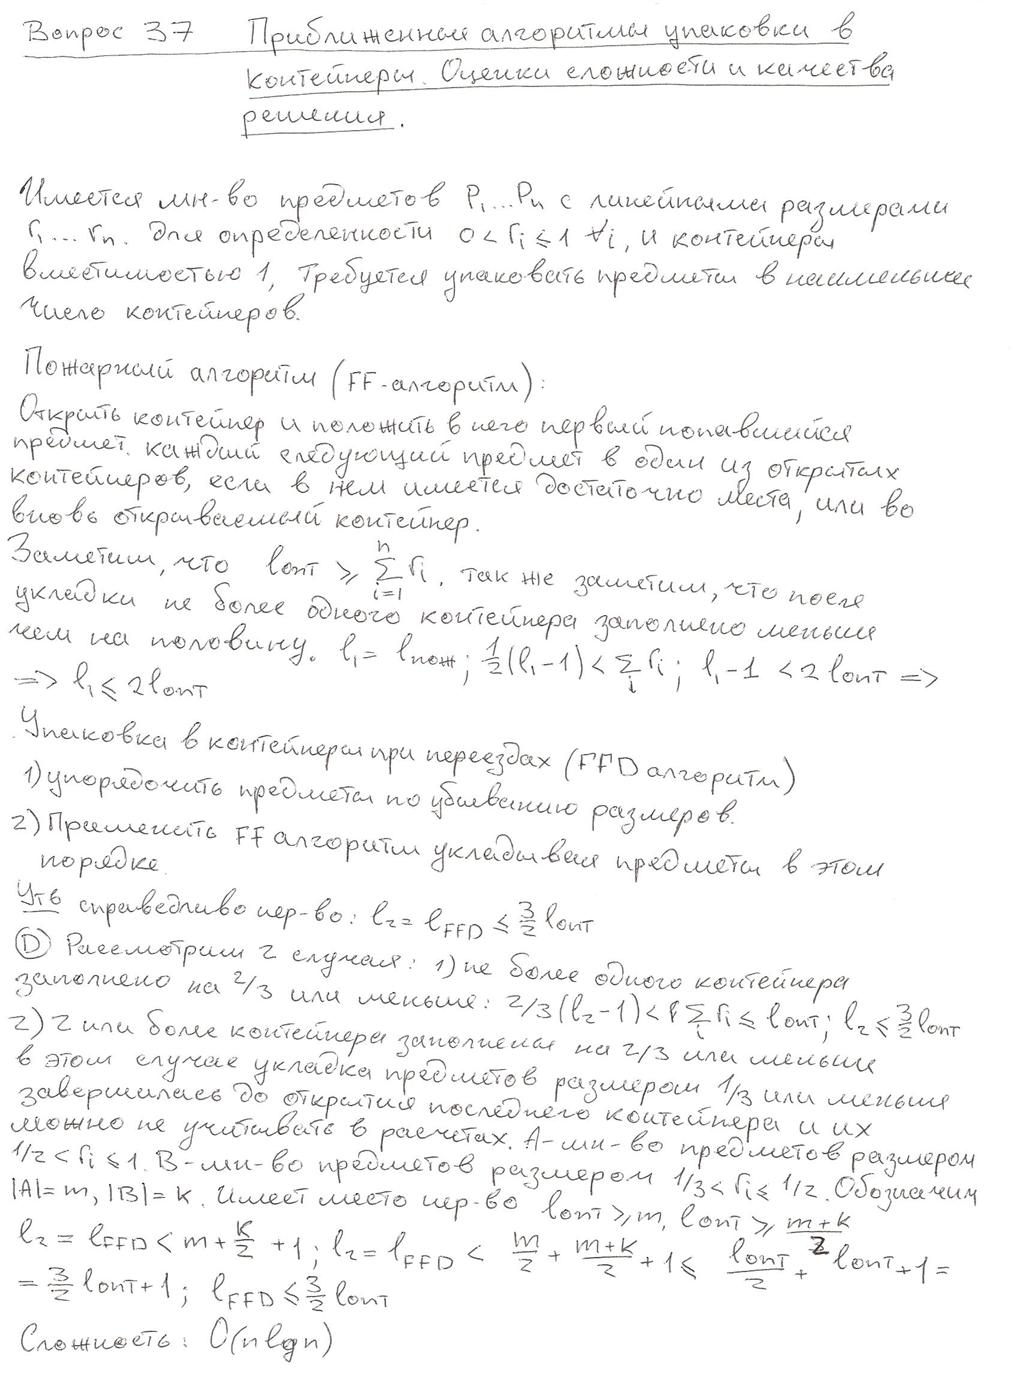 Вопрос 37 Приближенные алгоритмы упаковки в
контейнеры. Оценки сложности и качества
решения.
Имеется мн-во предметов P₁...Pₙ с линейными размерами
r₁...rₙ. Для определенности 0 < rᵢ ≤ 1 ∀i, и контейнеры
вместимостью 1, требуется упаковать предметы в наименьшее
число контейнеров.
Пожарный алгоритм (FF-алгоритм):
Открыть контейнер и положить в него первый попавшийся
предмет. каждый следующий предмет в один из открытых
контейнеров, если в нем имеется достаточно места, или во
вновь открываемый контейнер.
Заметим, что lопт ≥ ∑ᵢ₌₁ⁿ rᵢ. так же заметим, что после
укладки не более одного контейнера заполнено меньше
чем на половину. l₁ = lпож; 1/2(l₁-1) < ∑ᵢ rᵢ; l₁-1 < 2lопт =>
=> l₁ ≤ 2lопт
Упаковка в контейнеры при переездах (FFD алгоритм)
1) упорядочить предметы по убыванию размеров.
2) Применить FF алгоритм укладывая предметы в этом
порядке.
Утв справедливо нер-во: l₂ = lFFD ≤ 3/2 lопт
Ⓓ Рассмотрим 2 случая: 1) не более одного контейнера
заполнено на 2/3 или меньше: 2/3(l₂-1) < ∑ᵢ rᵢ ≤ lопт; l₂ ≤ 3/2 lопт
2) 2 или более контейнера заполнены на 2/3 или меньше
в этом случае укладка предметов размером 1/3 или меньше
завершилась до открытия последнего контейнера и их
можно не учитывать в расчетах. A-мн-во предметов размером
1/2 < rᵢ ≤ 1. B-мн-во предметов размером 1/3 < rᵢ ≤ 1/2. Обозначим
|A| = m, |B| = k. Имеет место нер-во lопт ≥ m, lопт ≥ (m+k)/2
l₂ = lFFD < m + k/2 + 1; l₂ = lFFD < m/2 + (m+k)/2 + 1 ≤ lопт/2 + lопт + 1 =
= 3/2 lопт + 1; lFFD ≤ 3/2 lопт
Сложность: O(n lg n)